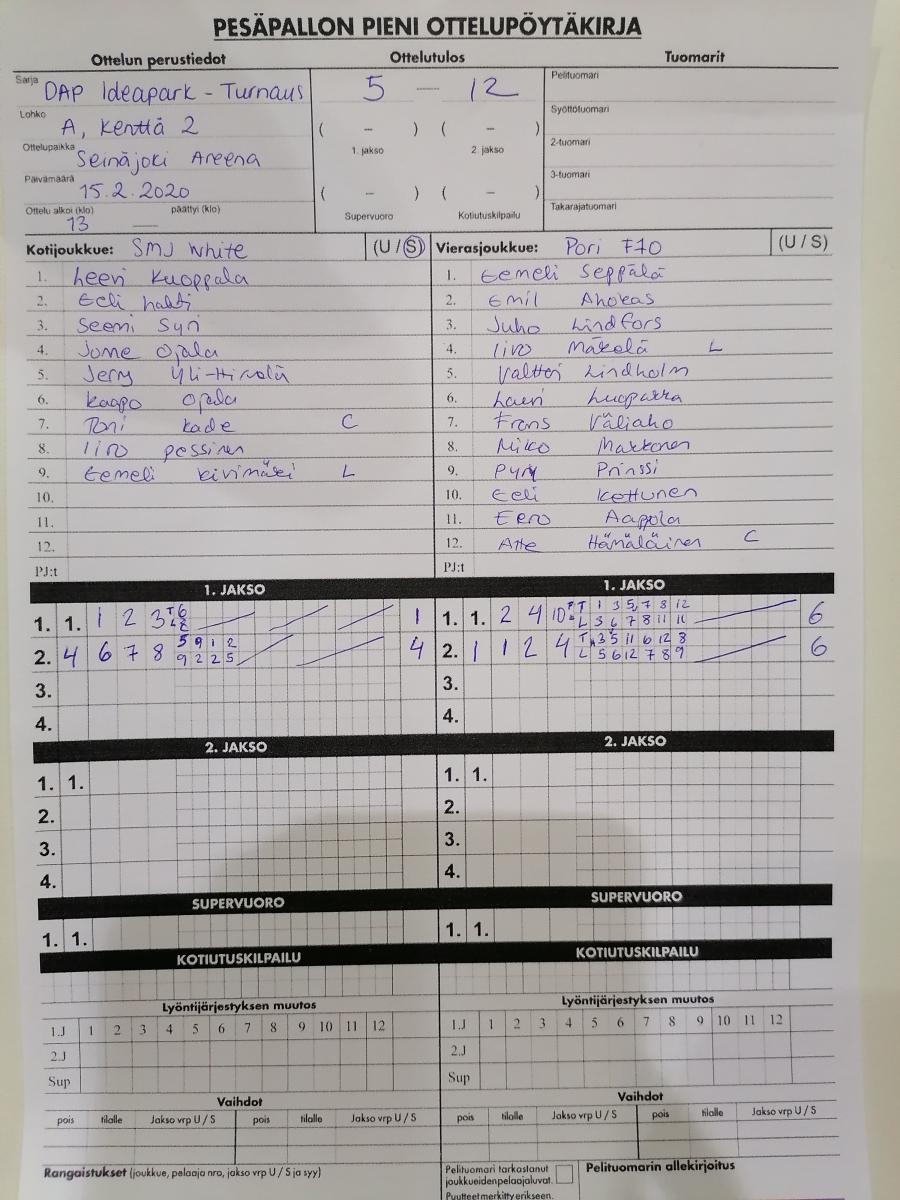 PESÄPALLON PIENI OTTELUPÖYTÄKIRJA
Ottelun perustiedot Ottelutulos Tuomarit
Sarja DAP Ideapark - Turnaus 5 — 12 Pelituomari
Lohko A, kenttä 2 ( – ) ( – ) Syöttötuomari
1. jakso 2. jakso
Ottelupaikka Seinäjoki Areena 2-tuomari
Päivämäärä 15.2.2020 ( – ) ( – ) 3-tuomari
Ottelu alkoi (klo) 13 päättyi (klo) — Supervuoro Kotiutuskilpailu Takarajatuomari
Kotijoukkue: SMJ White (U / S) Vierasjoukkue: Pori F10 (U / S)
1. Leevi Kuoppala 1. Eemeli Seppälä
2. Eeli 2. Emil Ahokas
3. Seemi Syri 3. Juho Lindfors
4. Ojala 4. Iiro Mäkelä L
5. Jerry 5. Valtteri Lindholm
6. Kaapo Ojala 6. Lauri
7. Toni Kade C 7. Frans Väliaho
8. Iiro Pessinen 8. Miko Makkonen
9. Eemeli Kivimäki L 9. Pyry Prinssi
10. 10. Eeli Kettunen
11. 11. Eero Aappola
12. 12. Atte Hämäläinen C
PJ:t PJ:t
1. JAKSO 1. JAKSO
1. 1. 1 2 3 1 1. 1. 2 4 10 T 1 3 5 7 8 12 6
L 3 6 7 8 11 11
2. 4 6 7 8 5 9 1 2 4 2. 1 1 2 4 T 3 5 11 6 12 8 6
9 2 2 5 L 5 6 12 7 8 9
3. 3.
4. 4.
2. JAKSO 2. JAKSO
1. 1. 1. 1.
2. 2.
3. 3.
4. 4.
SUPERVUORO SUPERVUORO
1. 1. 1. 1.
KOTIUTUSKILPAILU KOTIUTUSKILPAILU
Lyöntijärjestyksen muutos Lyöntijärjestyksen muutos
1.J 1 2 3 4 5 6 7 8 9 10 11 12 1.J 1 2 3 4 5 6 7 8 9 10 11 12
2.J 2.J
Sup Sup
Vaihdot Vaihdot
pois tilalle Jakso vrp U / S pois tilalle Jakso vrp U / S pois tilalle Jakso vrp U / S pois tilalle Jakso vrp U / S
Rangaistukset (joukkue, pelaaja nro, jakso vrp U / S ja syy) Pelituomari tarkastanut Pelituomarin allekirjoitus
joukkueiden pelaajaluvat.
Puutteet merkitty erikseen.